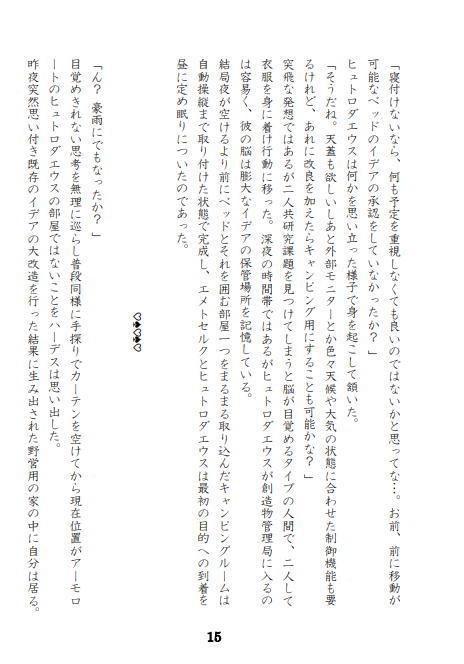 「寝付けないなら、何も予定を重視しなくても良いのではないかと思ってな…。お前、前に移動が
可能なベッドのイデアの承認をしていなかったか？」
ヒュトロダエウスは何かを思い立った様子で身を起こして頷いた。
「そうだね。天蓋も欲しいしあと外部モニターとか色々天候や大気の状態に合わせた制御機能も要
るけれど、あれに改良を加えたらキャンピング用にすることも可能かな？」
突飛な発想ではあるが二人共研究課題を見つけてしまうと脳が目覚めるタイプの人間で、二人して
衣服を身に着け行動に移った。深夜の時間帯ではあるがヒュトロダエウスが創造物管理局に入るの
は容易く、彼の脳は膨大なイデアの保管場所を記憶している。
結局夜が空けるより前にベッドとそれを囲む部屋一つをまるまる取り込んだキャンピングルームは
自動操縦まで取り付けた状態で完成し、エメトセルクとヒュトロダエウスは最初の目的への到着を
昼に定め眠りについたのであった。
♡♠♡♠♡
「ん？　豪雨にでもなったか？」
目覚めきれない思考を無理に巡らし普段同様に手探りでカーテンを空けてから現在位置がアーモロ
ートのヒュトロダエウスの部屋ではないことをハーデスは思い出した。
昨夜突然思い付き既存のイデアの大改造を行った結果に生み出された野営用の家の中に自分は居る。
15